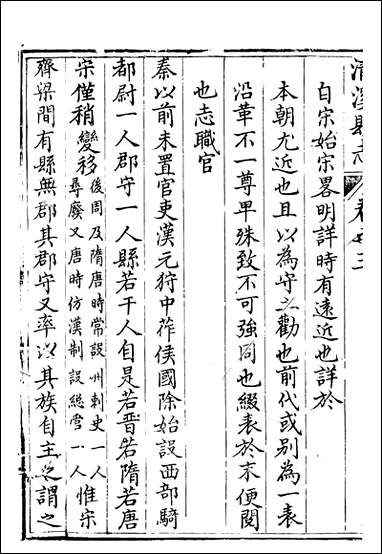 清溪縣志 卷之三
自宋始宋畧明詳時有遠近也詳於
本朝尤近也且以為守之勸也前代或别為一表
沿革不一尊卑殊致不可強同也綴表於末便閱
也志職官
秦以前未置官吏漢元狩中莋侯國除始設西部騎
都尉一人郡守一人縣若干人自是若晋若隋若唐
宋僅稍變移後周及隋唐時常設州刺史一人
尋廢又唐時仿漢制設總管一人惟宋
齊梁間有縣無郡其郡守又率以其族自主之謂之